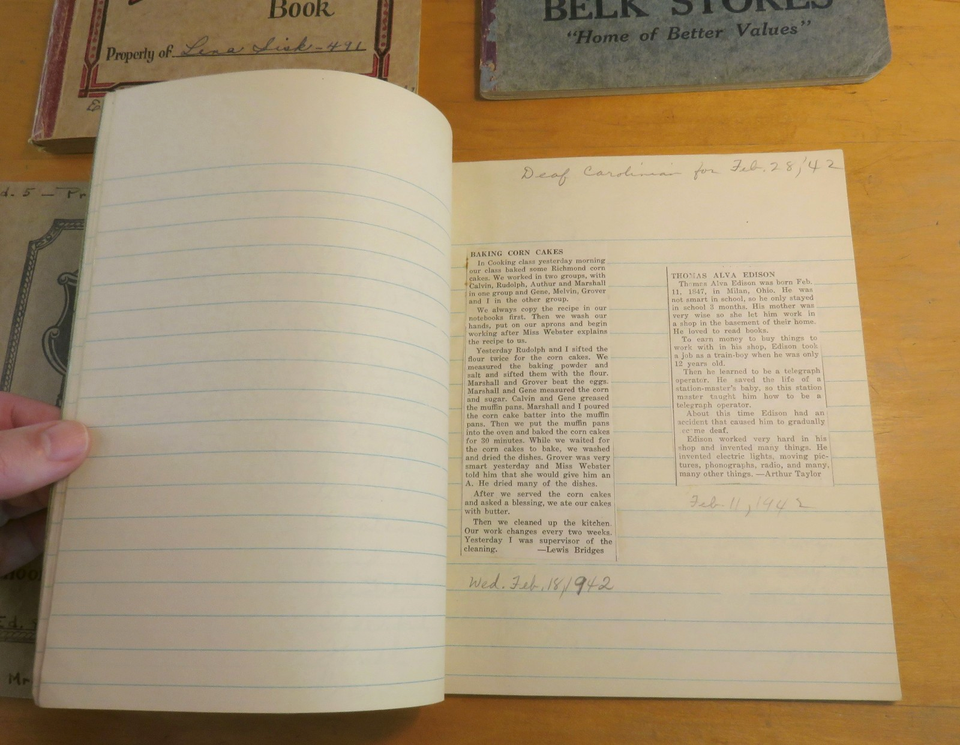 Book
Property of Lena Sisk - 491
BELK STORES
"Home of Better Values"
d. 5 — Pr
Deaf Carolinian for Feb. 28, '42
BAKING CORN CAKES
In Cooking class yesterday morning
our class baked some Richmond corn
cakes. We worked in two groups, with
Calvin, Rudolph, Authur and Marshall
in one group and Gene, Melvin, Grover
and I in the other group.
We always copy the recipe in our
notebooks first. Then we wash our
hands, put on our aprons and begin
working after Miss Webster explains
the recipe to us.
Yesterday Rudolph and I sifted the
flour twice for the corn cakes. We
measured the baking powder and
salt and sifted them with the flour.
Marshall and Grover beat the eggs.
Marshall and Gene measured the corn
and sugar. Calvin and Gene greased
the muffin pans. Marshall and I poured
the corn cake batter into the muffin
pans. Then we put the muffin pans
into the oven and baked the corn cakes
for 30 minutes. While we waited for
the corn cakes to bake, we washed
and dried the dishes. Grover was very
smart yesterday and Miss Webster
told him that she would give him an
A. He dried many of the dishes.
After we served the corn cakes
and asked a blessing, we ate our cakes
with butter.
Then we cleaned up the kitchen.
Our work changes every two weeks.
Yesterday I was supervisor of the
cleaning. —Lewis Bridges
Wed. Feb. 18, 1942
THOMAS ALVA EDISON
Thomas Alva Edison was born Feb.
11, 1847, in Milan, Ohio. He was
not smart in school, so he only stayed
in school 3 months. His mother was
very wise so she let him work in
a shop in the basement of their home.
He loved to read books.
To earn money to buy things to
work with in his shop, Edison took
a job as a train-boy when he was only
12 years old.
Then he learned to be a telegraph
operator. He saved the life of a
station-master's baby, so this station
master taught him how to be a
telegraph operator.
About this time Edison had an
accident that caused him to gradually
become deaf.
Edison worked very hard in his
shop and invented many things. He
invented electric lights, moving pic-
tures, phonographs, radio, and many,
many other things. —Arthur Taylor
Feb. 11, 1942
Ed.
Mr